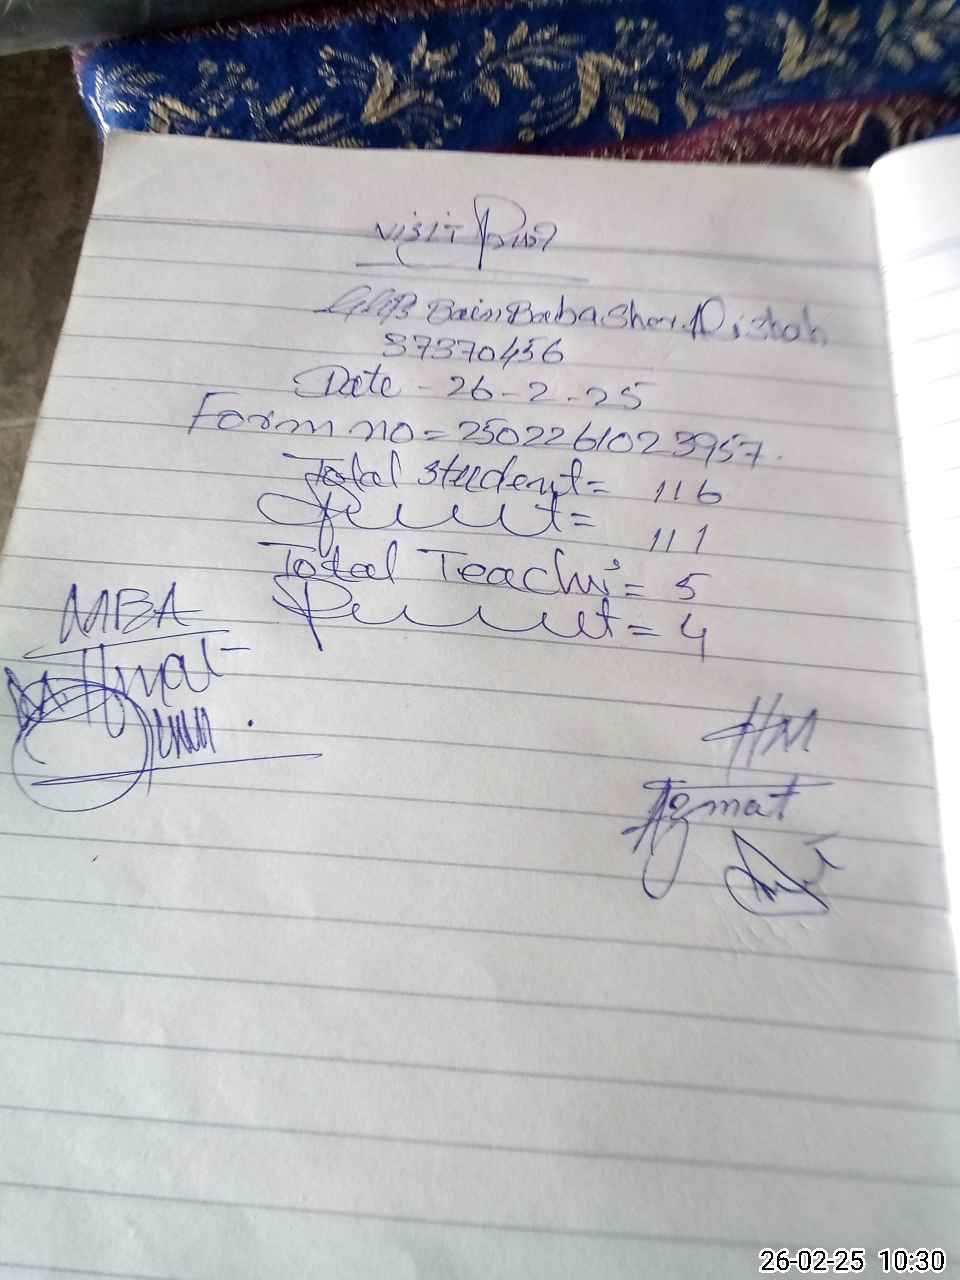 visit
Bain Baba Sher
37370456
Date - 26-2-25
Form no = 2502261023957.
Total student = 116
Present = 111
Total Teacher = 5
Present = 4
MBA
HM
Azmat
26-02-25 10:30